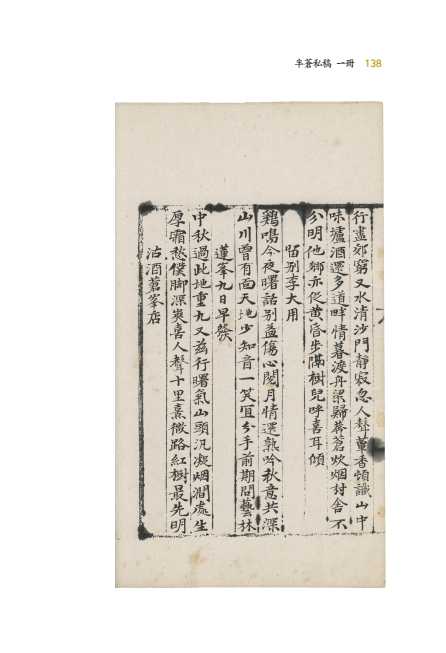 半蒼私稿 一冊 138
行盡郊窮又水清沙門靜寂忽人聲薰香頓識山中
味壚酒還多道畔情暮渡舟梁歸莽蒼炊烟村舍不
分明他鄉亦從黃昏步隔樹兒呼喜耳傾
留別李大用
鷄鳴今夜曙話別益傷心閱月情還熟吟秋意共深
山川曾有面天地少知音一笑宜分手前期問藝林
蓮峯九日早發
中秋過此地重九又茲行曙氣山頭汎凝烟澗處生
厚霜愁僕脚深爽喜人聲十里熹微路紅樹最先明
沽酒蒼峯店